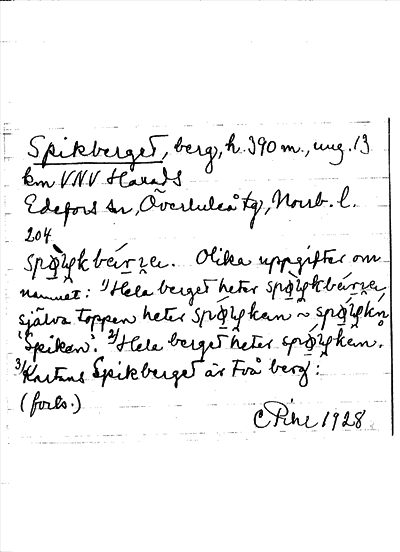 Spikberget, berg, h. 390 m., ung. 13
km VNV Harads
Edefors sn, Överluleå tg, Norrb. l.
204
Olika uppgifter om
namnet: 1) Hela berget heter
själva toppen heter
'Spiken'. 2) Hela berget heter
3) Kartans Spikberget är två berg:
(forts.)
C Pihl 1928